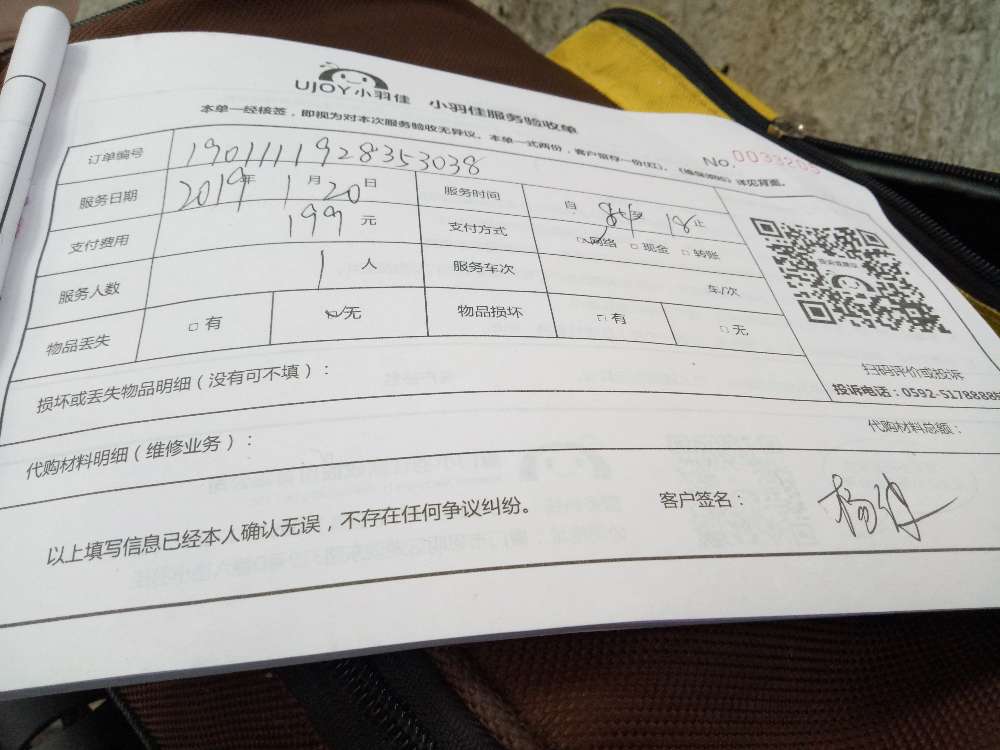 UJOY小羽佳 小羽佳服务验收单
本单一经核签，即视为对本次服务验收无异议。本单一式两份，客户留存一份(红)。《维保须知》详见背面。
NO.
订单编号 1901111928353038
服务日期 2019年1月20日 服务时间 自 至 18止
支付费用 199元 支付方式 网络 □现金 □转账
服务人数 1人 服务车次 车/次
物品丢失 □有 无 物品损坏 □有 □无
扫码评价或投诉
损坏或丢失物品明细（没有可不填）：
投诉电话：0592-5178888
代购材料明细（维修业务）：
代购材料总额：
以上填写信息已经本人确认无误，不存在任何争议纠纷。
客户签名：